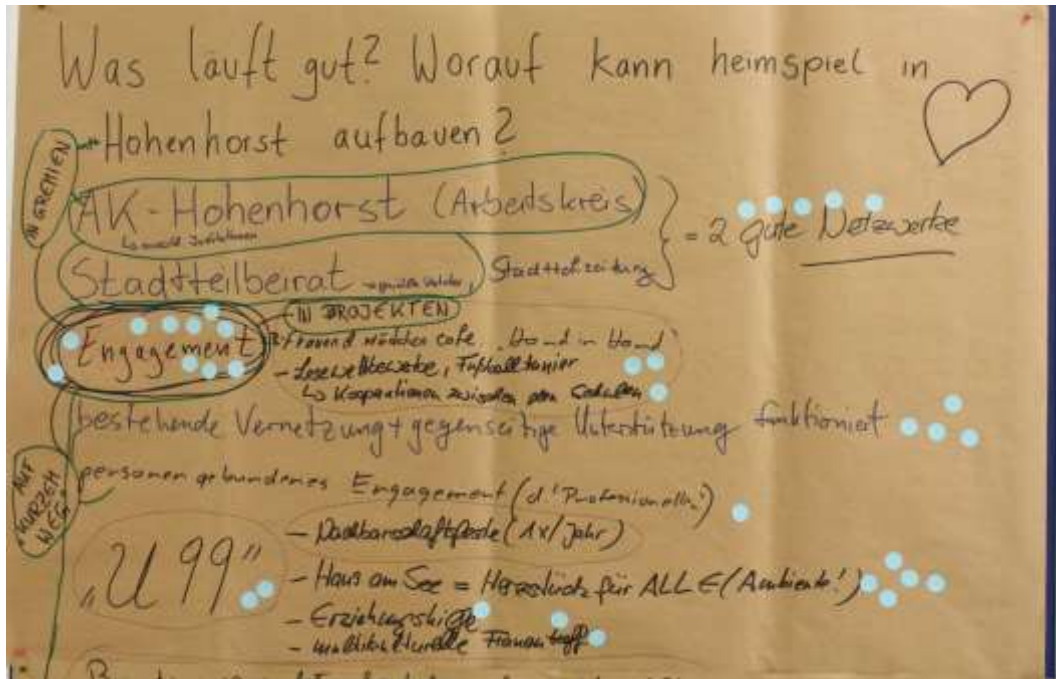 Was läuft gut? Worauf kann heimspiel in
Hohenhorst aufbauen?
IN GREMIEN
AK-Hohenhorst (Arbeitskreis)
= 2 gute Netzwerke
Stadtteilbeirat
Stadtteilzeitung
IN PROJEKTEN
Engagement
cafe "Hand in Hand"
- Lesewettbewerbe, Fußballturnier
↳ Kooperationen zwischen den Schulen
bestehende Vernetzung + gegenseitige Unterstützung funktioniert
AUF KURZEM WEG
personengebundenes Engagement (d. "Professionellen")
- Nachbarschaftsfeste (1x/Jahr)
"U 99"
- Haus am See = Herzstück für ALLE (Ambiente!)
- Erziehungshilfe
- multikulturelle Frauentreff